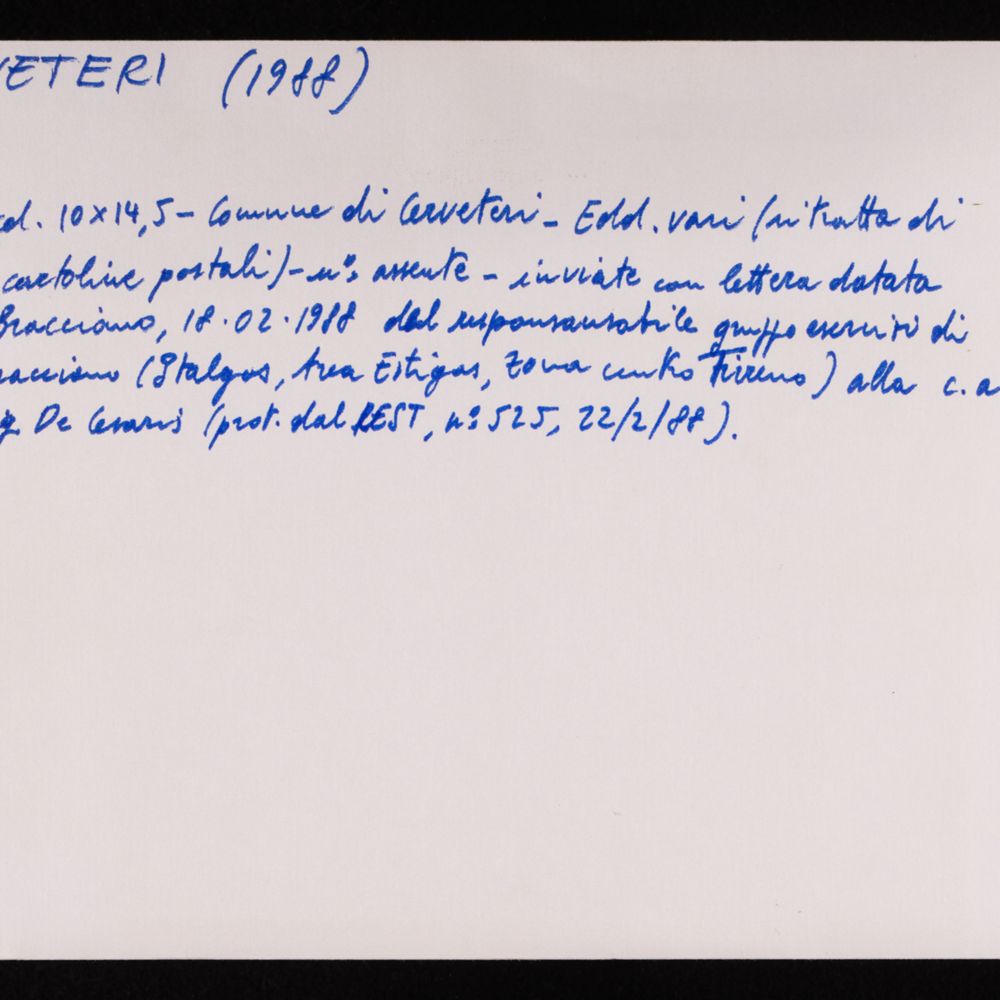 VETERI (1988)
cd. 10x14,5 - Comune di Cerveteri - Edd. vari (si tratta di
cartoline postali) - n°s assente - inviate con lettera datata
Bracciano, 18.02.1988 dal responsansabile gruppo esercizi di
racciano (Italgas, Area Estigas, Zona centro Tirreno) alla c.a
g De Cesaris (prot. dal REST, n° 525, 22/2/88).